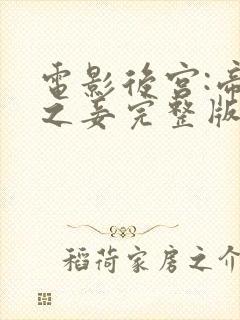 電影後宮:帝
之妾完整版
稻荷家房之介